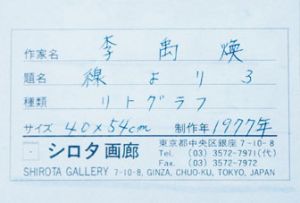 作家名 李禹煥
題名 線より3
種類 リトグラフ
サイズ 40×54cm 制作年 1977年
シロタ画廊
東京都中央区銀座7-10-8
Tel. (03) 3572-7971(代)
Fax. (03) 3572-7972
SHIROTA GALLERY 7-10-8, GINZA, CHUO-KU, TOKYO, JAPAN